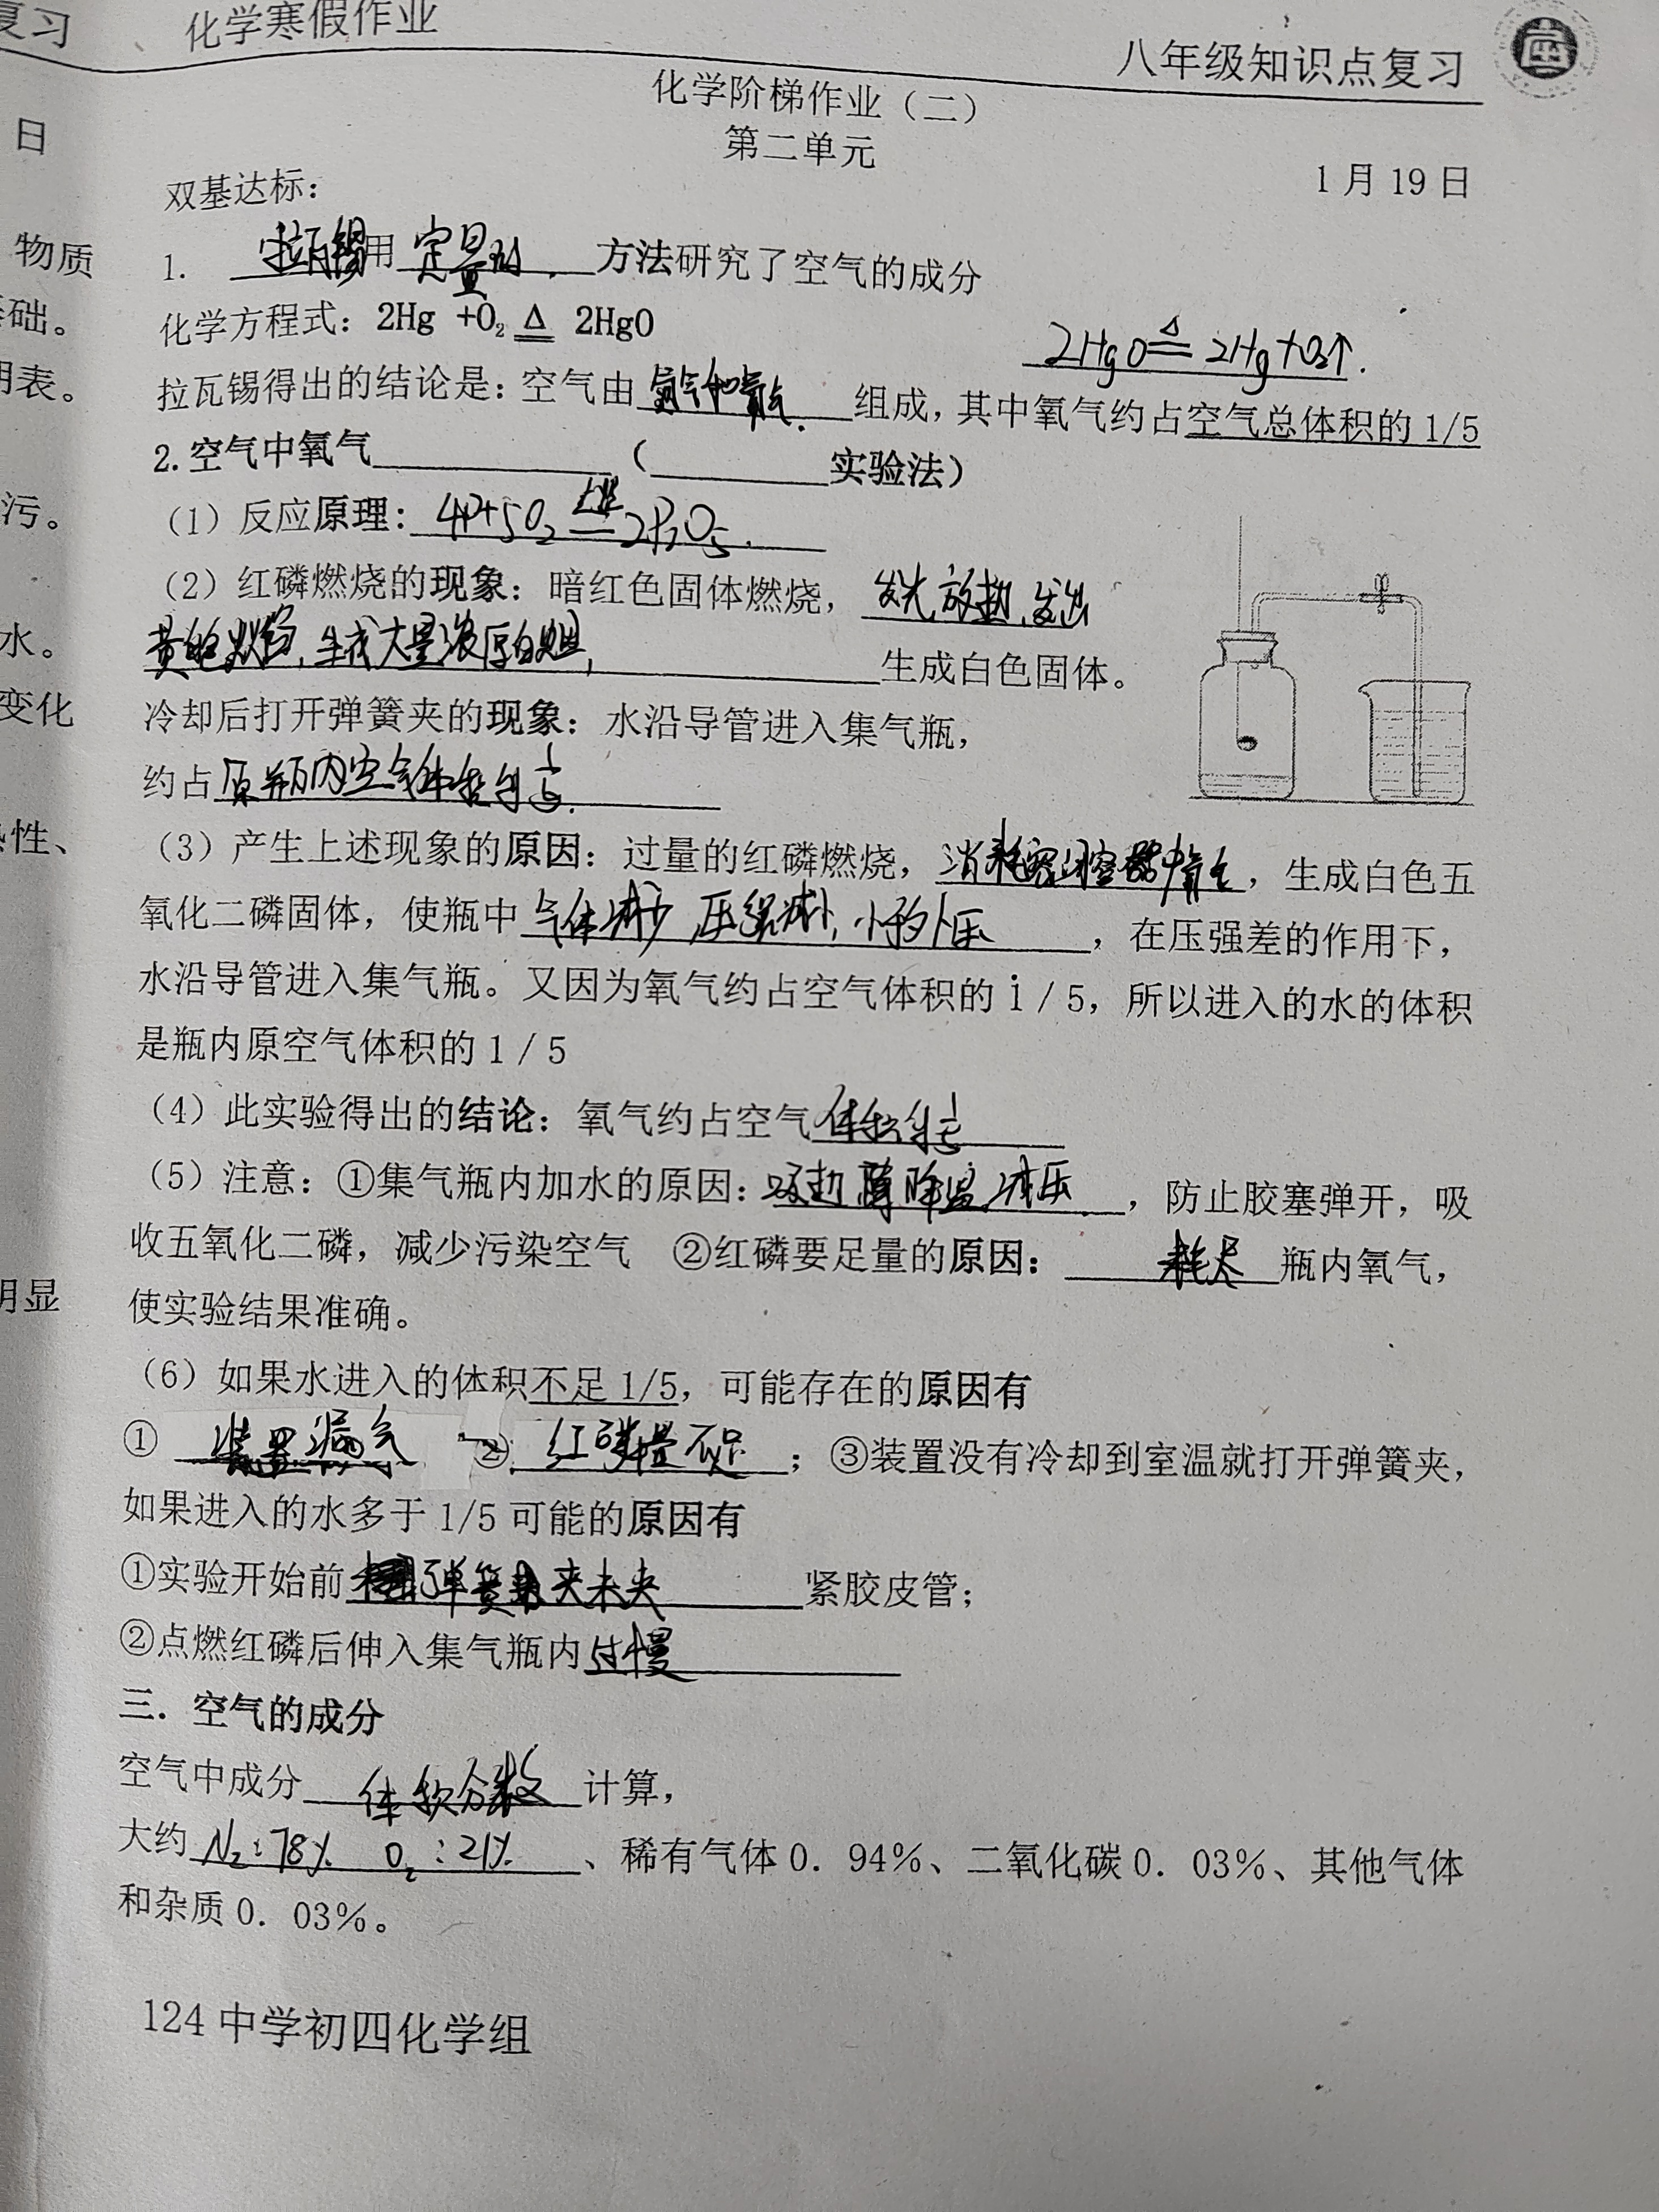 复习
日
物质
础。
明表。
污。
水。
变化
性、
明显
化学寒假作业
八年级知识点复习
化学阶梯作业（二）
第二单元
1月19日
双基达标：
1. 拉瓦锡用 定量的 方法研究了空气的成分
化学方程式：2Hg +O₂ ≜ 2HgO 2HgO ≜ 2Hg+O₂↑.
拉瓦锡得出的结论是：空气由氮气和氧气组成，其中氧气约占空气总体积的1/5
2.空气中氧气 （ 实验法）
（1）反应原理：4P+5O₂ 点燃 2P₂O₅.
（2）红磷燃烧的现象：暗红色固体燃烧，发光,放热,发出
黄色火焰,生成大量浓厚白烟, 生成白色固体。
冷却后打开弹簧夹的现象：水沿导管进入集气瓶，
约占原瓶内空气体积的1/5.
（3）产生上述现象的原因：过量的红磷燃烧，消耗密闭容器中氧气，生成白色五
氧化二磷固体，使瓶中气体减少 压强减小,小于外压，在压强差的作用下，
水沿导管进入集气瓶。又因为氧气约占空气体积的1/5，所以进入的水的体积
是瓶内原空气体积的1/5
（4）此实验得出的结论：氧气约占空气体积的1/5
（5）注意：①集气瓶内加水的原因：吸热 降温减压，防止胶塞弹开，吸
收五氧化二磷，减少污染空气 ②红磷要足量的原因： 耗尽 瓶内氧气，
使实验结果准确。
（6）如果水进入的体积不足1/5，可能存在的原因有
① 装置漏气 ② 红磷量不足；③装置没有冷却到室温就打开弹簧夹，
如果进入的水多于1/5可能的原因有
①实验开始前弹簧夹未夹紧胶皮管；
②点燃红磷后伸入集气瓶内过慢
三．空气的成分
空气中成分 体积分数 计算，
大约 N₂:78% O₂:21% 、稀有气体0.94%、二氧化碳0.03%、其他气体
和杂质0.03%。
124中学初四化学组